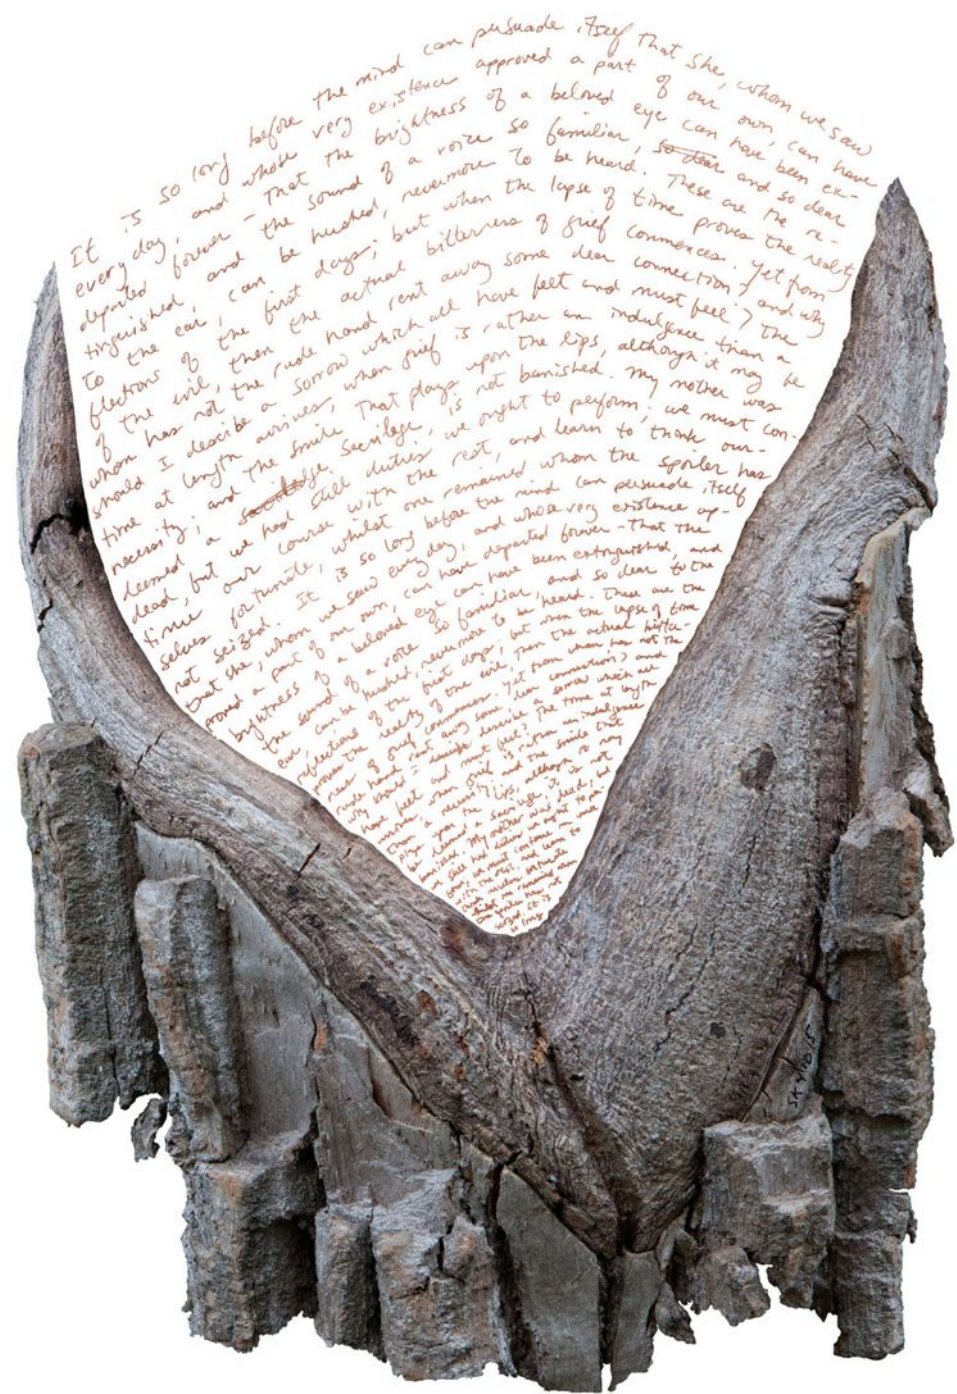 It is so long before the mind can persuade itself that she, whom we saw
every day, and whose very existence approved a part of our own, can have
departed forever - that the brightness of a beloved eye can have been ex-
tinguished and the sound of a voice so familiar, so dear and so dear
to the ear, can be hushed, nevermore to be heard. These are the re-
flections of the first days; but when the lapse of time proves the reality
of the evil, then the actual bitterness of grief commences. Yet from
whom has not the rude hand rent away some dear connection? and why
should I describe a sorrow which all have felt and must feel? The
time at length arrives, when grief is rather an indulgence than a
necessity; and the smile that plays upon the lips, although it may be
deemed a sacrilege, is not banished. My mother was
dead, but we had still duties we ought to perform; we must con-
time our course with the rest, and learn to think our-
selves fortunate, whilst one remained whom the spoiler has
not seized. It is so long before the mind can persuade itself
that she, whom we saw every day, and whose very existence ap-
proved a part of our own, can have departed forever - that the
brightness of a beloved eye can have been extinguished, and
the sound of a voice so familiar, and so dear to the
ear, can be hushed, nevermore to be heard. These are the
reflections of the first days; but when the lapse of time
proves the reality of the evil, then the actual bitter-
ness of grief commences. Yet from whom has not the
rude hand rent away some dear connection? and
why should I describe a sorrow which all
have felt and must feel? The time at length
arrives, when grief is rather an indulgence
than a necessity; and the smile that
plays upon the lips, although it may
be deemed a sacrilege, it is not
banished. My mother was dead; we
still had duties we ought to per-
form; we must continue our course
with the rest, and learn to
think ourselves fortunate
whilst one remained whom
the spoiler has not
seized. It is
so long